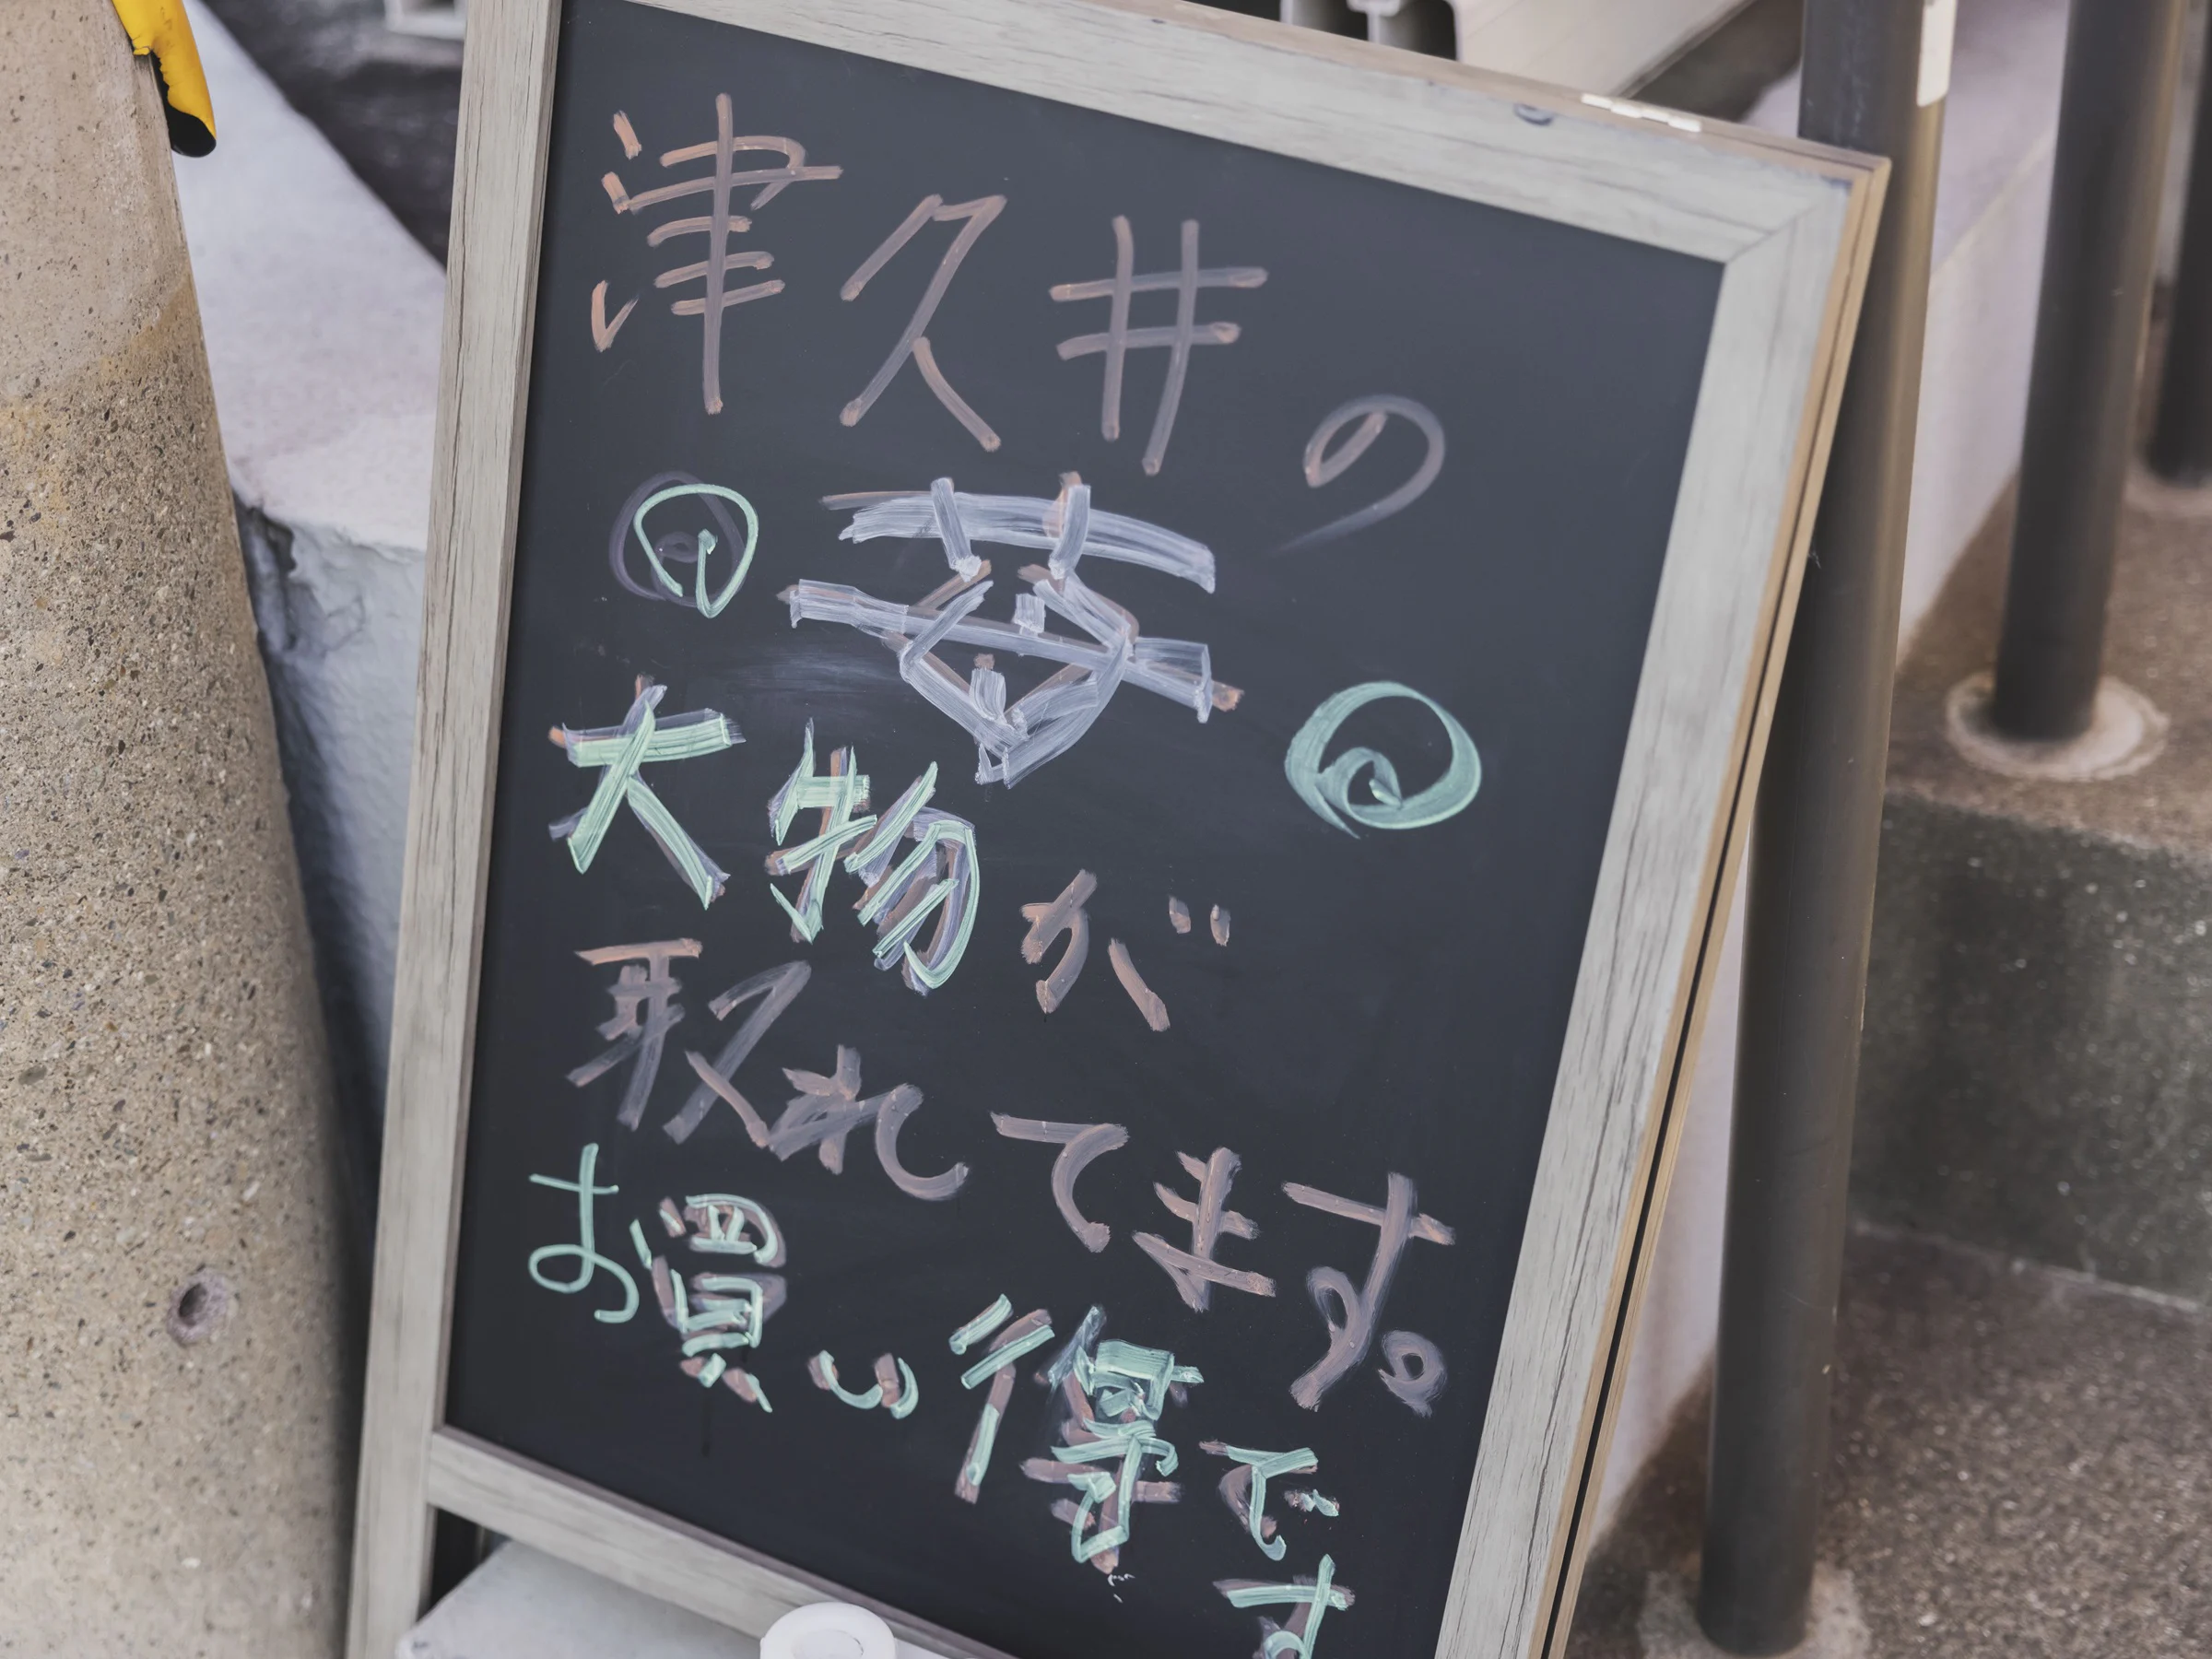 津久井の
苺
大物が
取れてます。
お買い得で
す